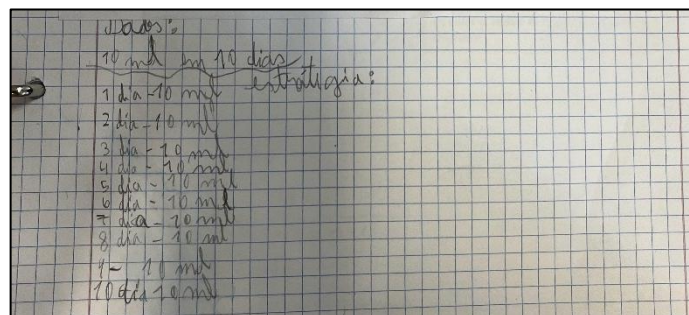 Dados:
10 ml em 10 dias
estratégia:
1 dia - 10 ml
2 dia - 10 ml
3 dia - 10 ml
4 dia - 10 ml
5 dia - 10 ml
6 dia - 10 ml
7 dia - 10 ml
8 dia - 10 ml
9 - 10 ml
10 dia 10 ml